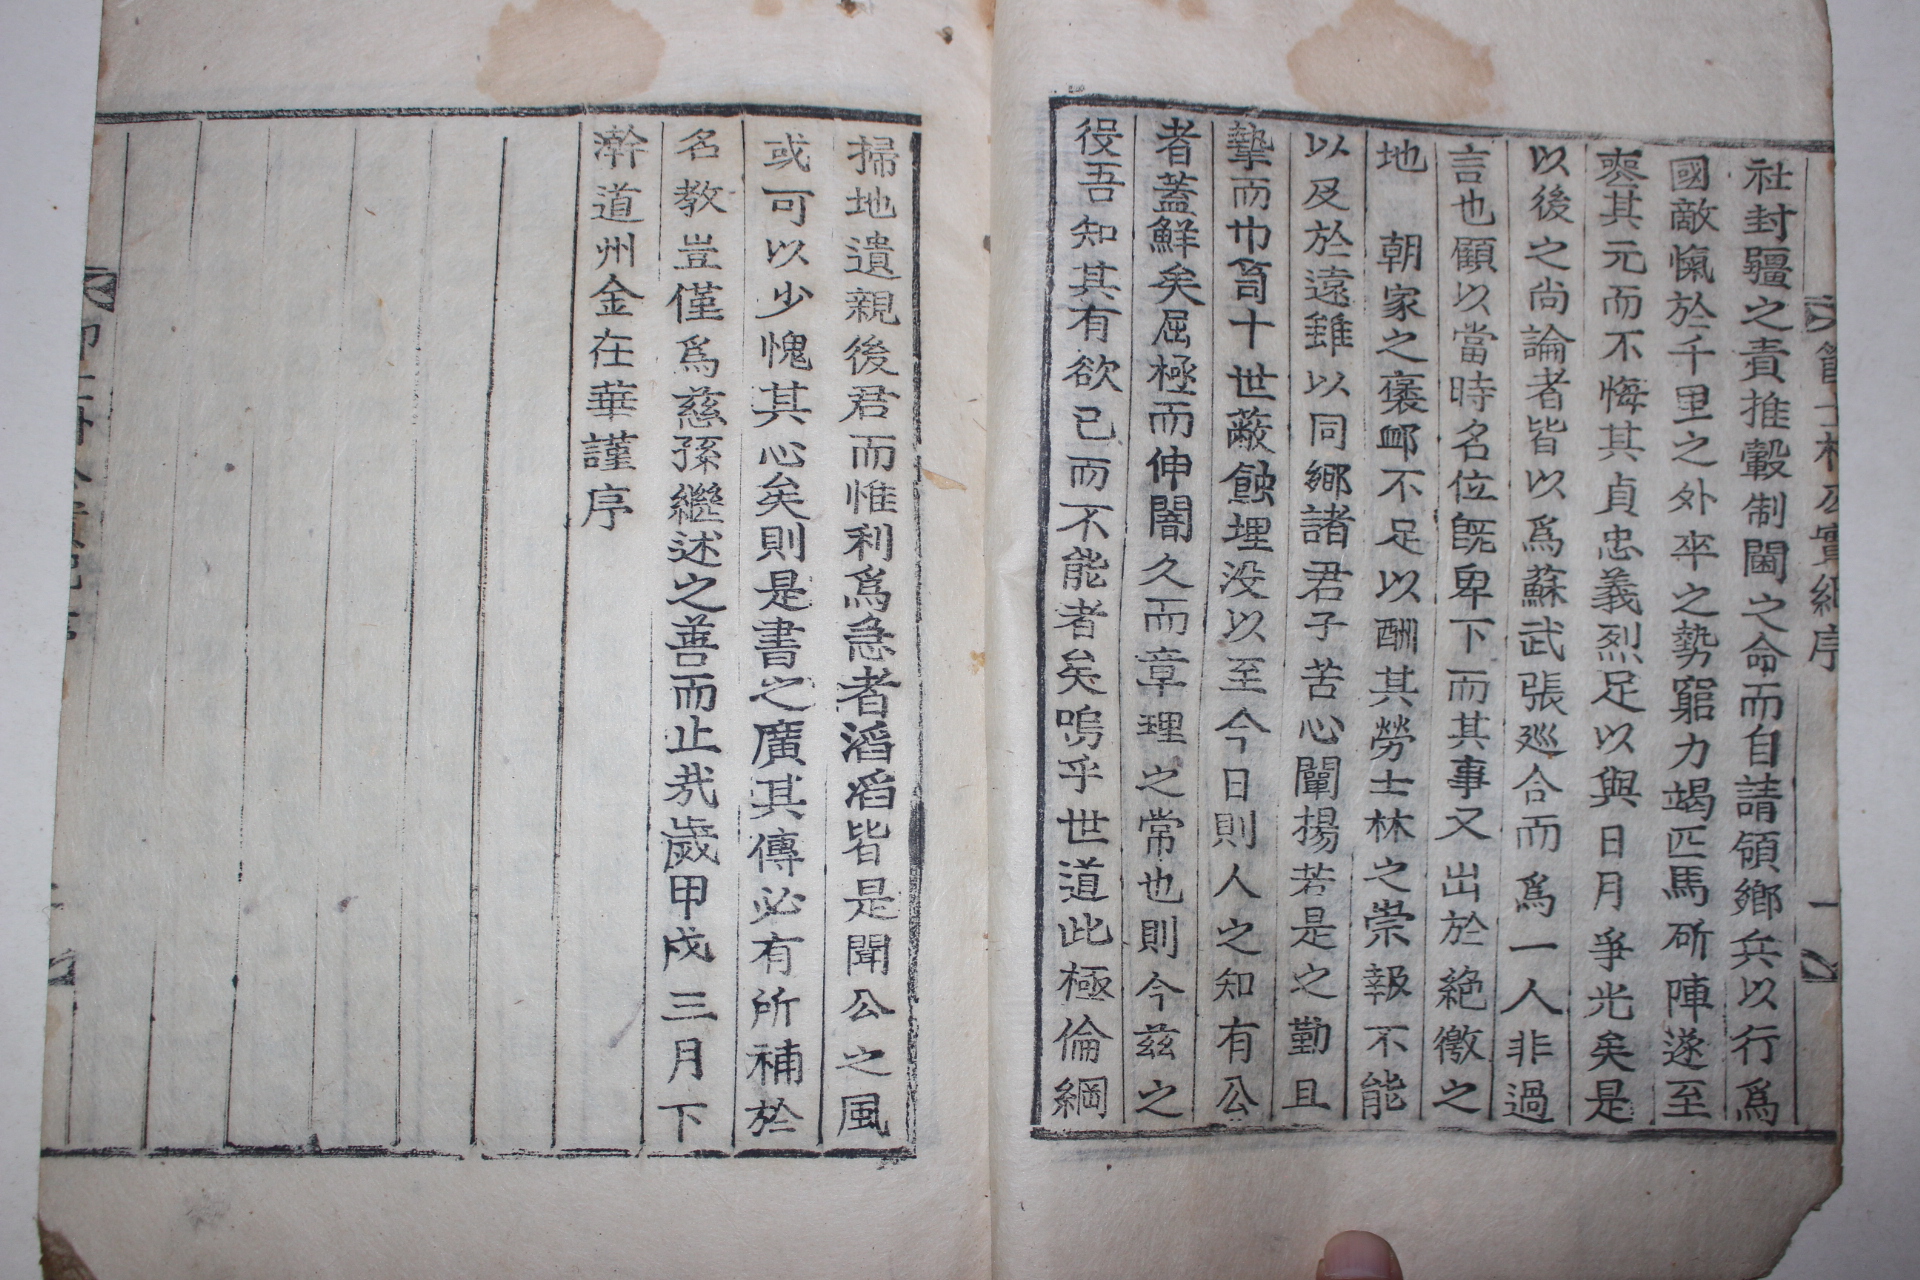 節士林公實紀序 一
社封疆之責推轂制閫之命而自請領鄉兵以行爲
國敵愾於千里之外卒之勢窮力竭匹馬斫陣遂至
喪其元而不悔其貞忠義烈足以與日月爭光矣是
以後之尚論者皆以爲蘇武張巡合而爲一人非過
言也顧以當時名位旣卑下而其事又出於絶徼之
地 朝家之褒衈不足以酬其勞士林之崇報不能
以及於遠雖以同鄉諸君子苦心闡揚若是之勤且
摯而卄十世蔽蝕埋没以至今日則人之知有公
者蓋鮮矣屈極而伸闇久而章理之常也則今玆之
役吾知其有欲已而不能者矣嗚乎世道此極倫綱
掃地遺親後君而惟利爲急者滔滔皆是聞公之風
或可以少愧其心矣則是書之廣其傳必有所補於
名教豈僅爲慈孫繼述之善而止㢤歲甲戌三月下
澣道州金在華謹序